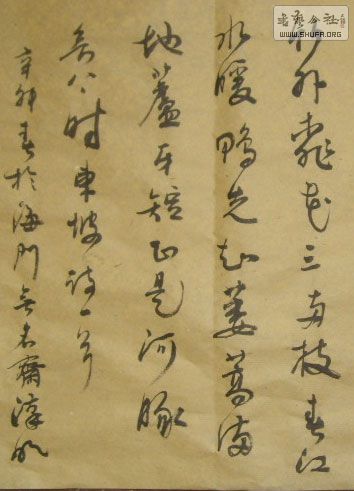 书艺公社
WWW.SHUFA.ORG
竹外桃花三两枝春江
水暖鴨先知蔞蒿满
地蘆牙短正是河豚
欲上时東坡诗一首
辛卯春於海門無名齋